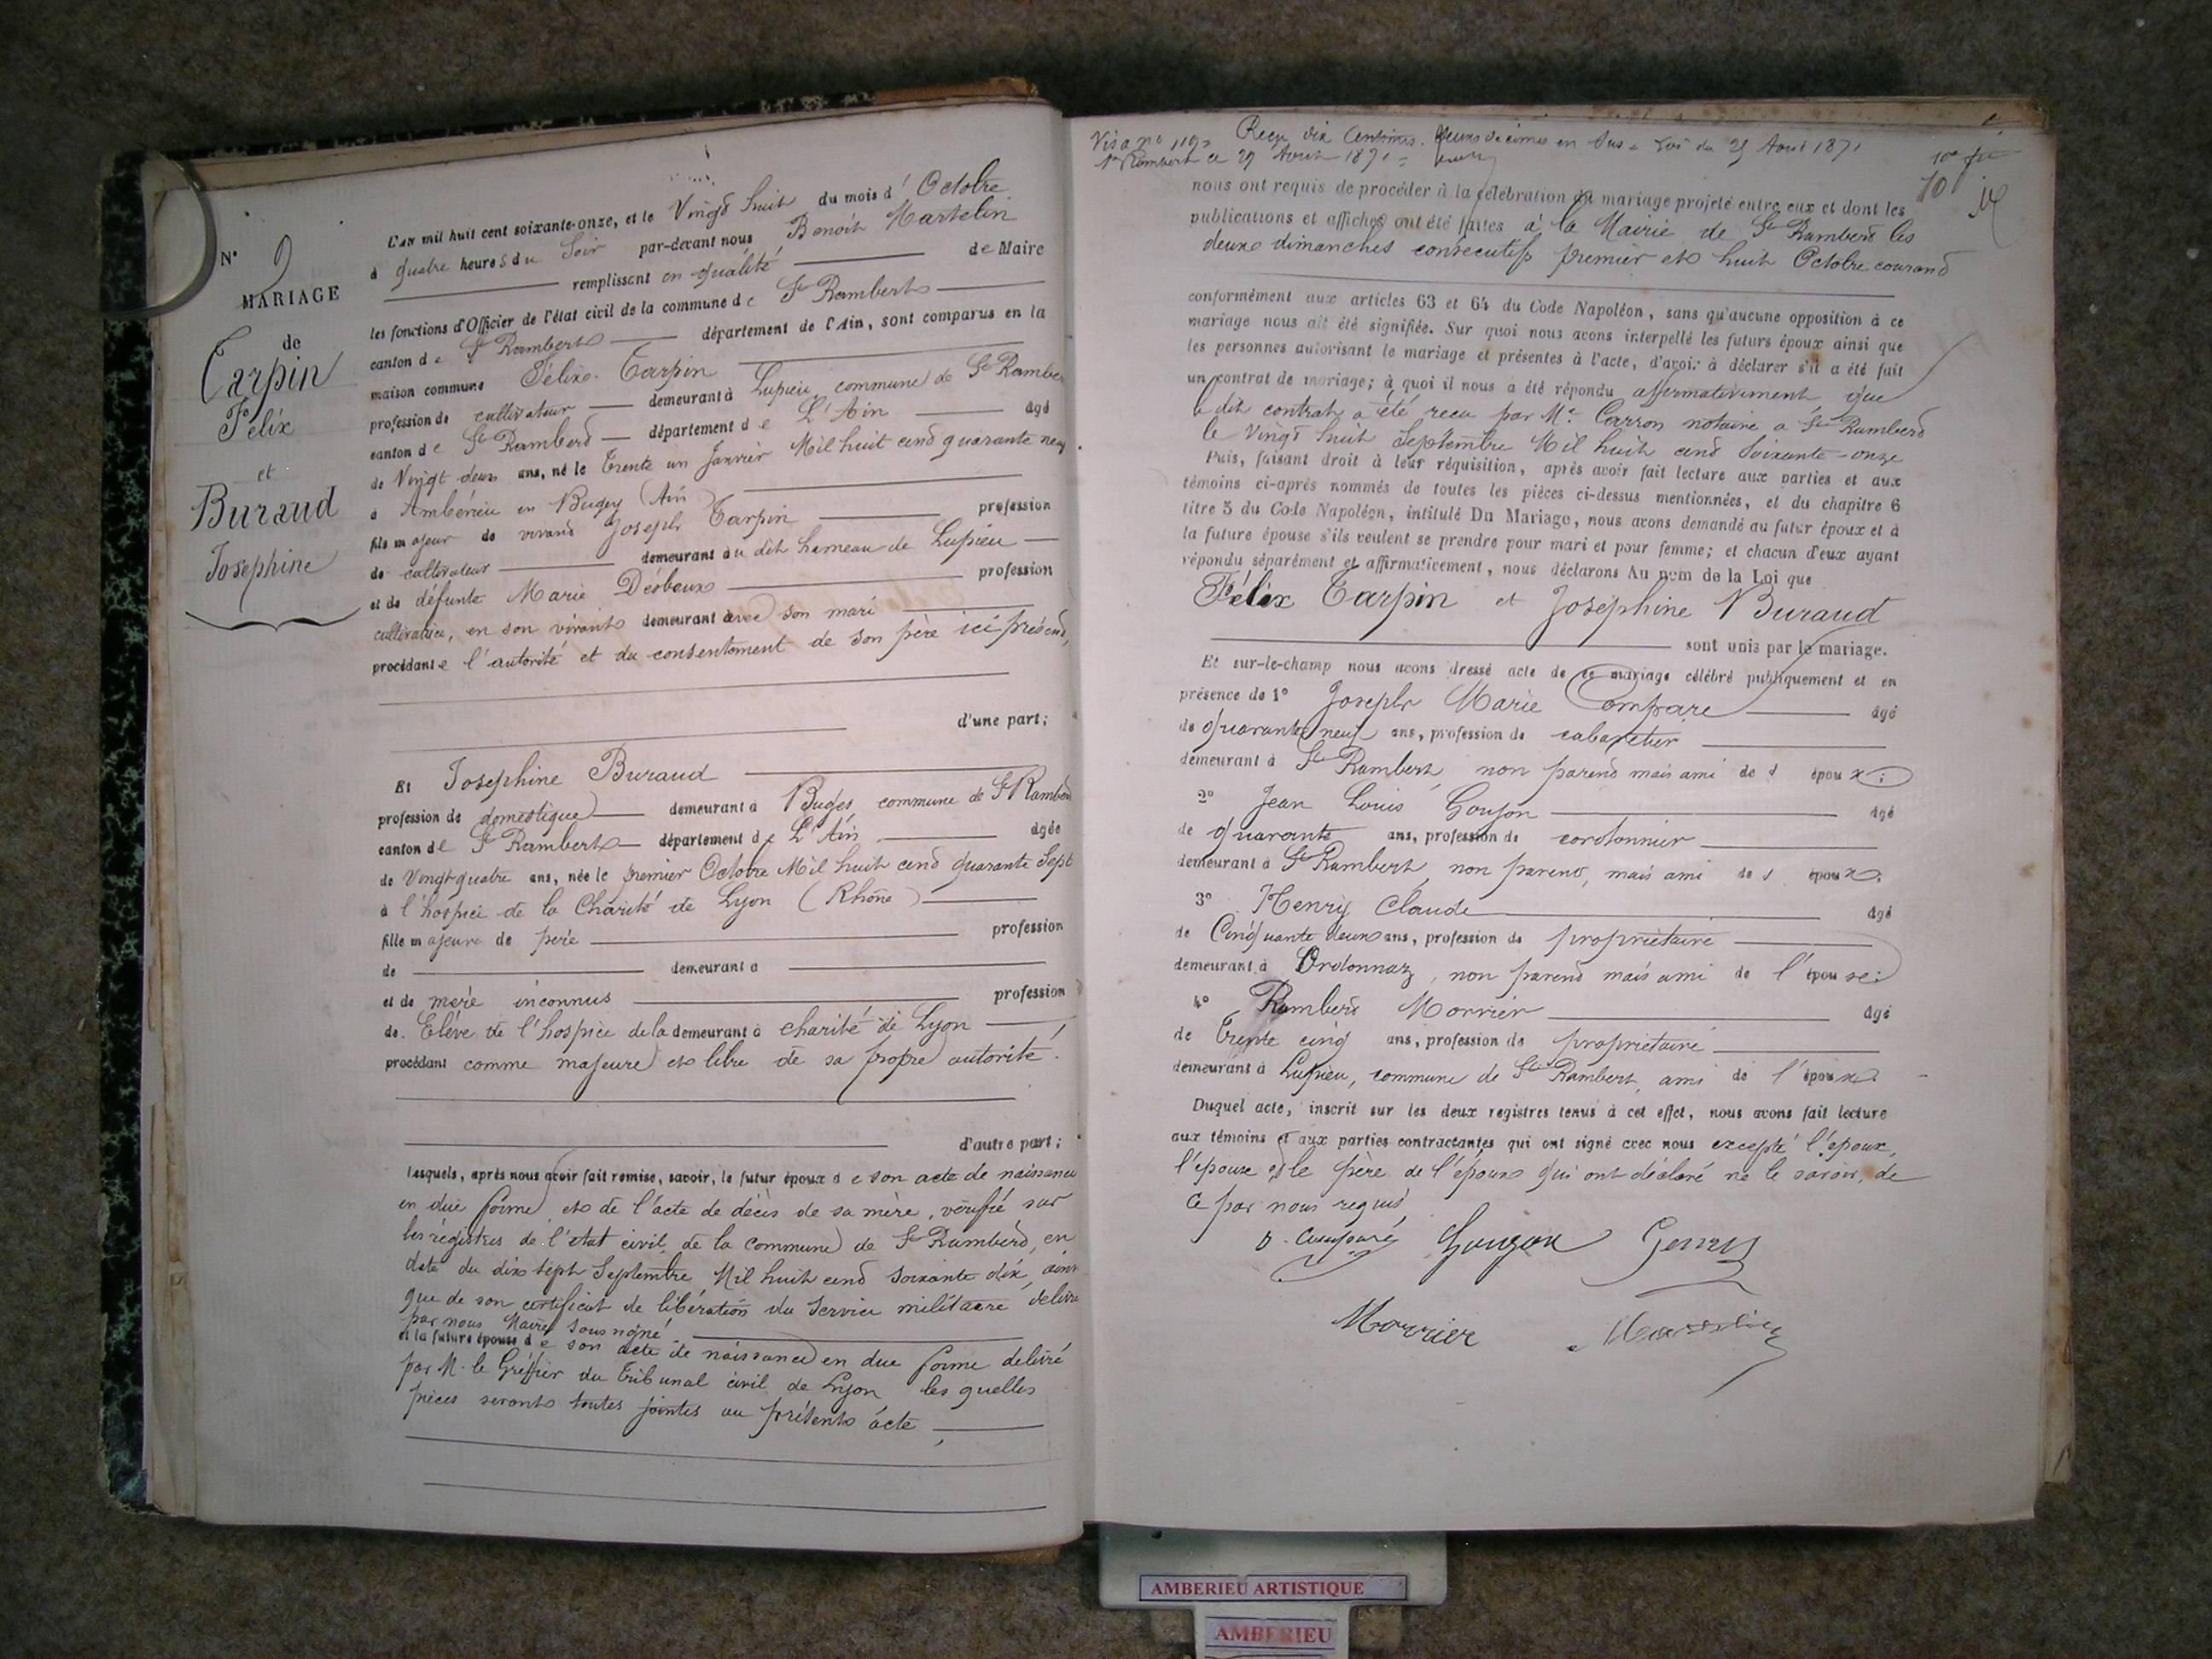 N° 9
MARIAGE
de
Tarpin
Félix
et
Buraud
Josephine
L'an mil huit cent soixante-onze, et le Vingt huit du mois d' Octobre
à quatre heures du Soir par-devant nous Benoît Martelin
remplissant en qualité de Maire
les fonctions d'Officier de l'état civil de la commune de St Rambert
canton de St Rambert département de l'Ain, sont comparus en la
maison commune Félix Tarpin
profession de cultivateur demeurant à Lupieu, commune de St Rambert
canton de St Rambert département de L'Ain âgé
de Vingt deux ans, né le Trente un Janvier Mil huit cent quarante neuf
à Ambérieu en Bugey (Ain)
fils majeur de vivant Joseph Tarpin profession
de cultivateur demeurant au dit hameau de Lupieu
et de défunte Marie Déobeux profession
cultivatrice, en son vivant demeurant avec son mari
procédant de l'autorité et du consentement de son père ici présent,
d'une part;
Et Josephine Buraud
profession de domestique demeurant à Buges commune de St Rambert
canton de St Rambert département de L'Ain âgée
de Vingt quatre ans, née le premier Octobre Mil huit cent quarante Sept
à l'hospice de la Charité de Lyon (Rhône)
fille majeure de père profession
de demeurant a
et de mère inconnus profession
de Elève de l'hospice de la demeurant à charité de Lyon
procédant comme majeure et libre de sa propre autorité.
d'autre part;
Lesquels, après nous avoir fait remise, savoir, le futur époux de son acte de naissance
en due forme et de l'acte de décès de sa mère, vérifié sur
les régistres de l'état civil de la commune de St Rambert, en
date du dix sept Septembre Mil huit cent soixante dix, ainsi
que de son certificat de libération du service militaire délivré
par nous Maire sous signé
et la future épouse de son acte de naissance en due forme délivré
par M. le Greffier du Tribunal civil de Lyon les quelles
pièces seront toutes jointes au présent acte
Visa n° 1192 Reçu dix Centimes. deux décimes en sus - Loi du 23 Août 1871
St Rambert ce 29 Août 1871
10e
10
nous ont requis de procéder à la célébration du mariage projeté entre eux et dont les
publications et affiches ont été faites à la Mairie de St Rambert les
deux dimanches consécutifs premier et huit Octobre courant
conformément aux articles 63 et 64 du Code Napoléon, sans qu'aucune opposition à ce
mariage nous ait été signifiée. Sur quoi nous avons interpellé les futurs époux ainsi que
les personnes autorisant le mariage et présentes à l'acte, d'avoir à déclarer s'il a été fait
un contrat de mariage; à quoi il nous a été répondu affirmativement que
le dit contrat a été reçu par Me Carron notaire à St Rambert
le Vingt huit Septembre Mil huit cent soixante-onze
Puis, faisant droit à leur réquisition, après avoir fait lecture aux parties et aux
témoins ci-après nommés de toutes les pièces ci-dessus mentionnées, et du chapitre 6
titre 5 du Code Napoléon, intitulé Du Mariage, nous avons demandé au futur époux et à
la future épouse s'ils veulent se prendre pour mari et pour femme; et chacun d'eux ayant
répondu séparément et affirmativement, nous déclarons Au nom de la Loi que
Félix Tarpin et Joséphine Buraud
sont unis par le mariage.
Et sur-le-champ nous avons dressé acte de ce mariage célébré publiquement et en
présence de 1° Joseph Marie Comparé âgé
de quarante neuf ans, profession de cabaretier
demeurant à St Rambert non parent mais ami des époux;
2° Jean Louis Goujon âgé
de quarante ans, profession de cordonnier
demeurant à St Rambert, non parent, mais ami des époux.
3° Henry Claude âgé
de Cinquante deux ans, profession de propriétaire
demeurant à Ordonnaz, non parent mais ami de l'épouse;
4° Rambert Morrier âgé
de Trente cinq ans, profession de propriétaire
demeurant à Lupieu, commune de St Rambert, ami de l'époux.
Duquel acte, inscrit sur les deux registres tenus à cet effet, nous avons fait lecture
aux témoins et aux parties contractantes qui ont signé avec nous excepté l'époux,
l'épouse et le père de l'époux qui ont déclaré ne le savoir, de
ce par nous requis
Comparé Goujon
Morrier Martelin
AMBERIEU ARTISTIQUE
AMBERIEU